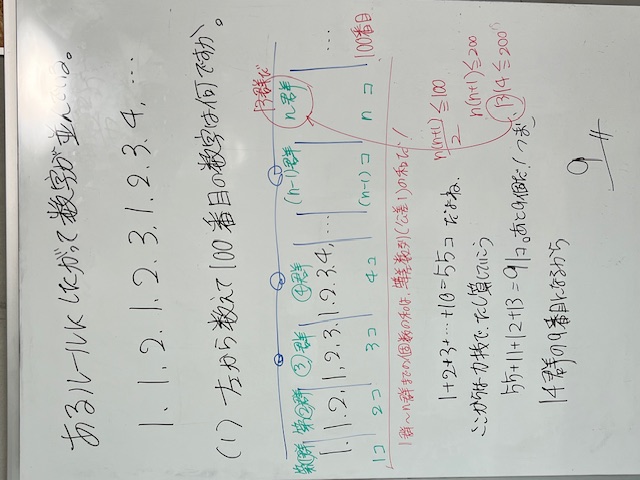 あるルールにしたがって数字が並んでいる。
1. 1. 2. 1. 2. 3. 1. 2. 3. 4, …
(1) 左から数えて100番目の数字は何ですか。
13群だ
第1群 第②群 ③群 ④群 (n-1)群 n群
1. 1. 2, 1, 2, 3, 1. 2. 3. 4, … …
1コ 2コ 3コ 4コ (n-1)コ nコ 100番目
1群〜n群までの個数の和は、等差数列(公差1)の和だ!
n(n+1)/2 ≦ 100
n(n+1) ≦ 200
13・14 ≦ 200
1+2+3+…+10=55コ だよね。
ここからは力技で、たし算していこう
55+11+12+13=91コ。あと9個だ!
14群の9番目になるから
9